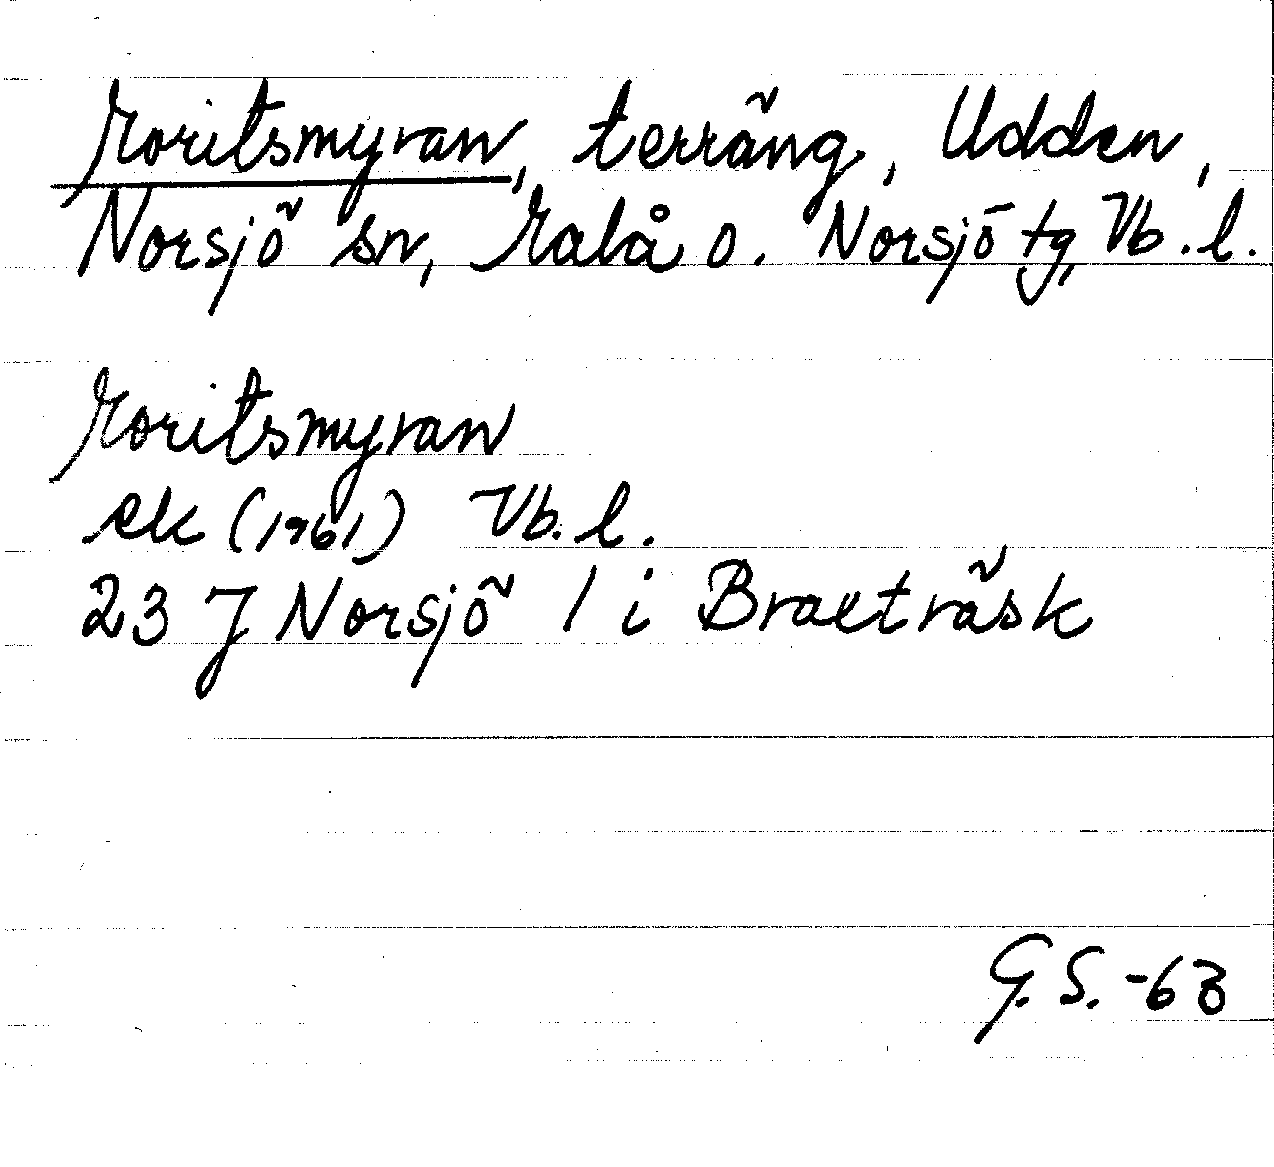 Moritsmyran, terräng, Udden,
Norsjö sn, Malå o. Norsjö tg, Vb. l.
Moritsmyran
ek (1961) Vb. l.
23 J Norsjö 1 i Braxträsk
G. S. -63